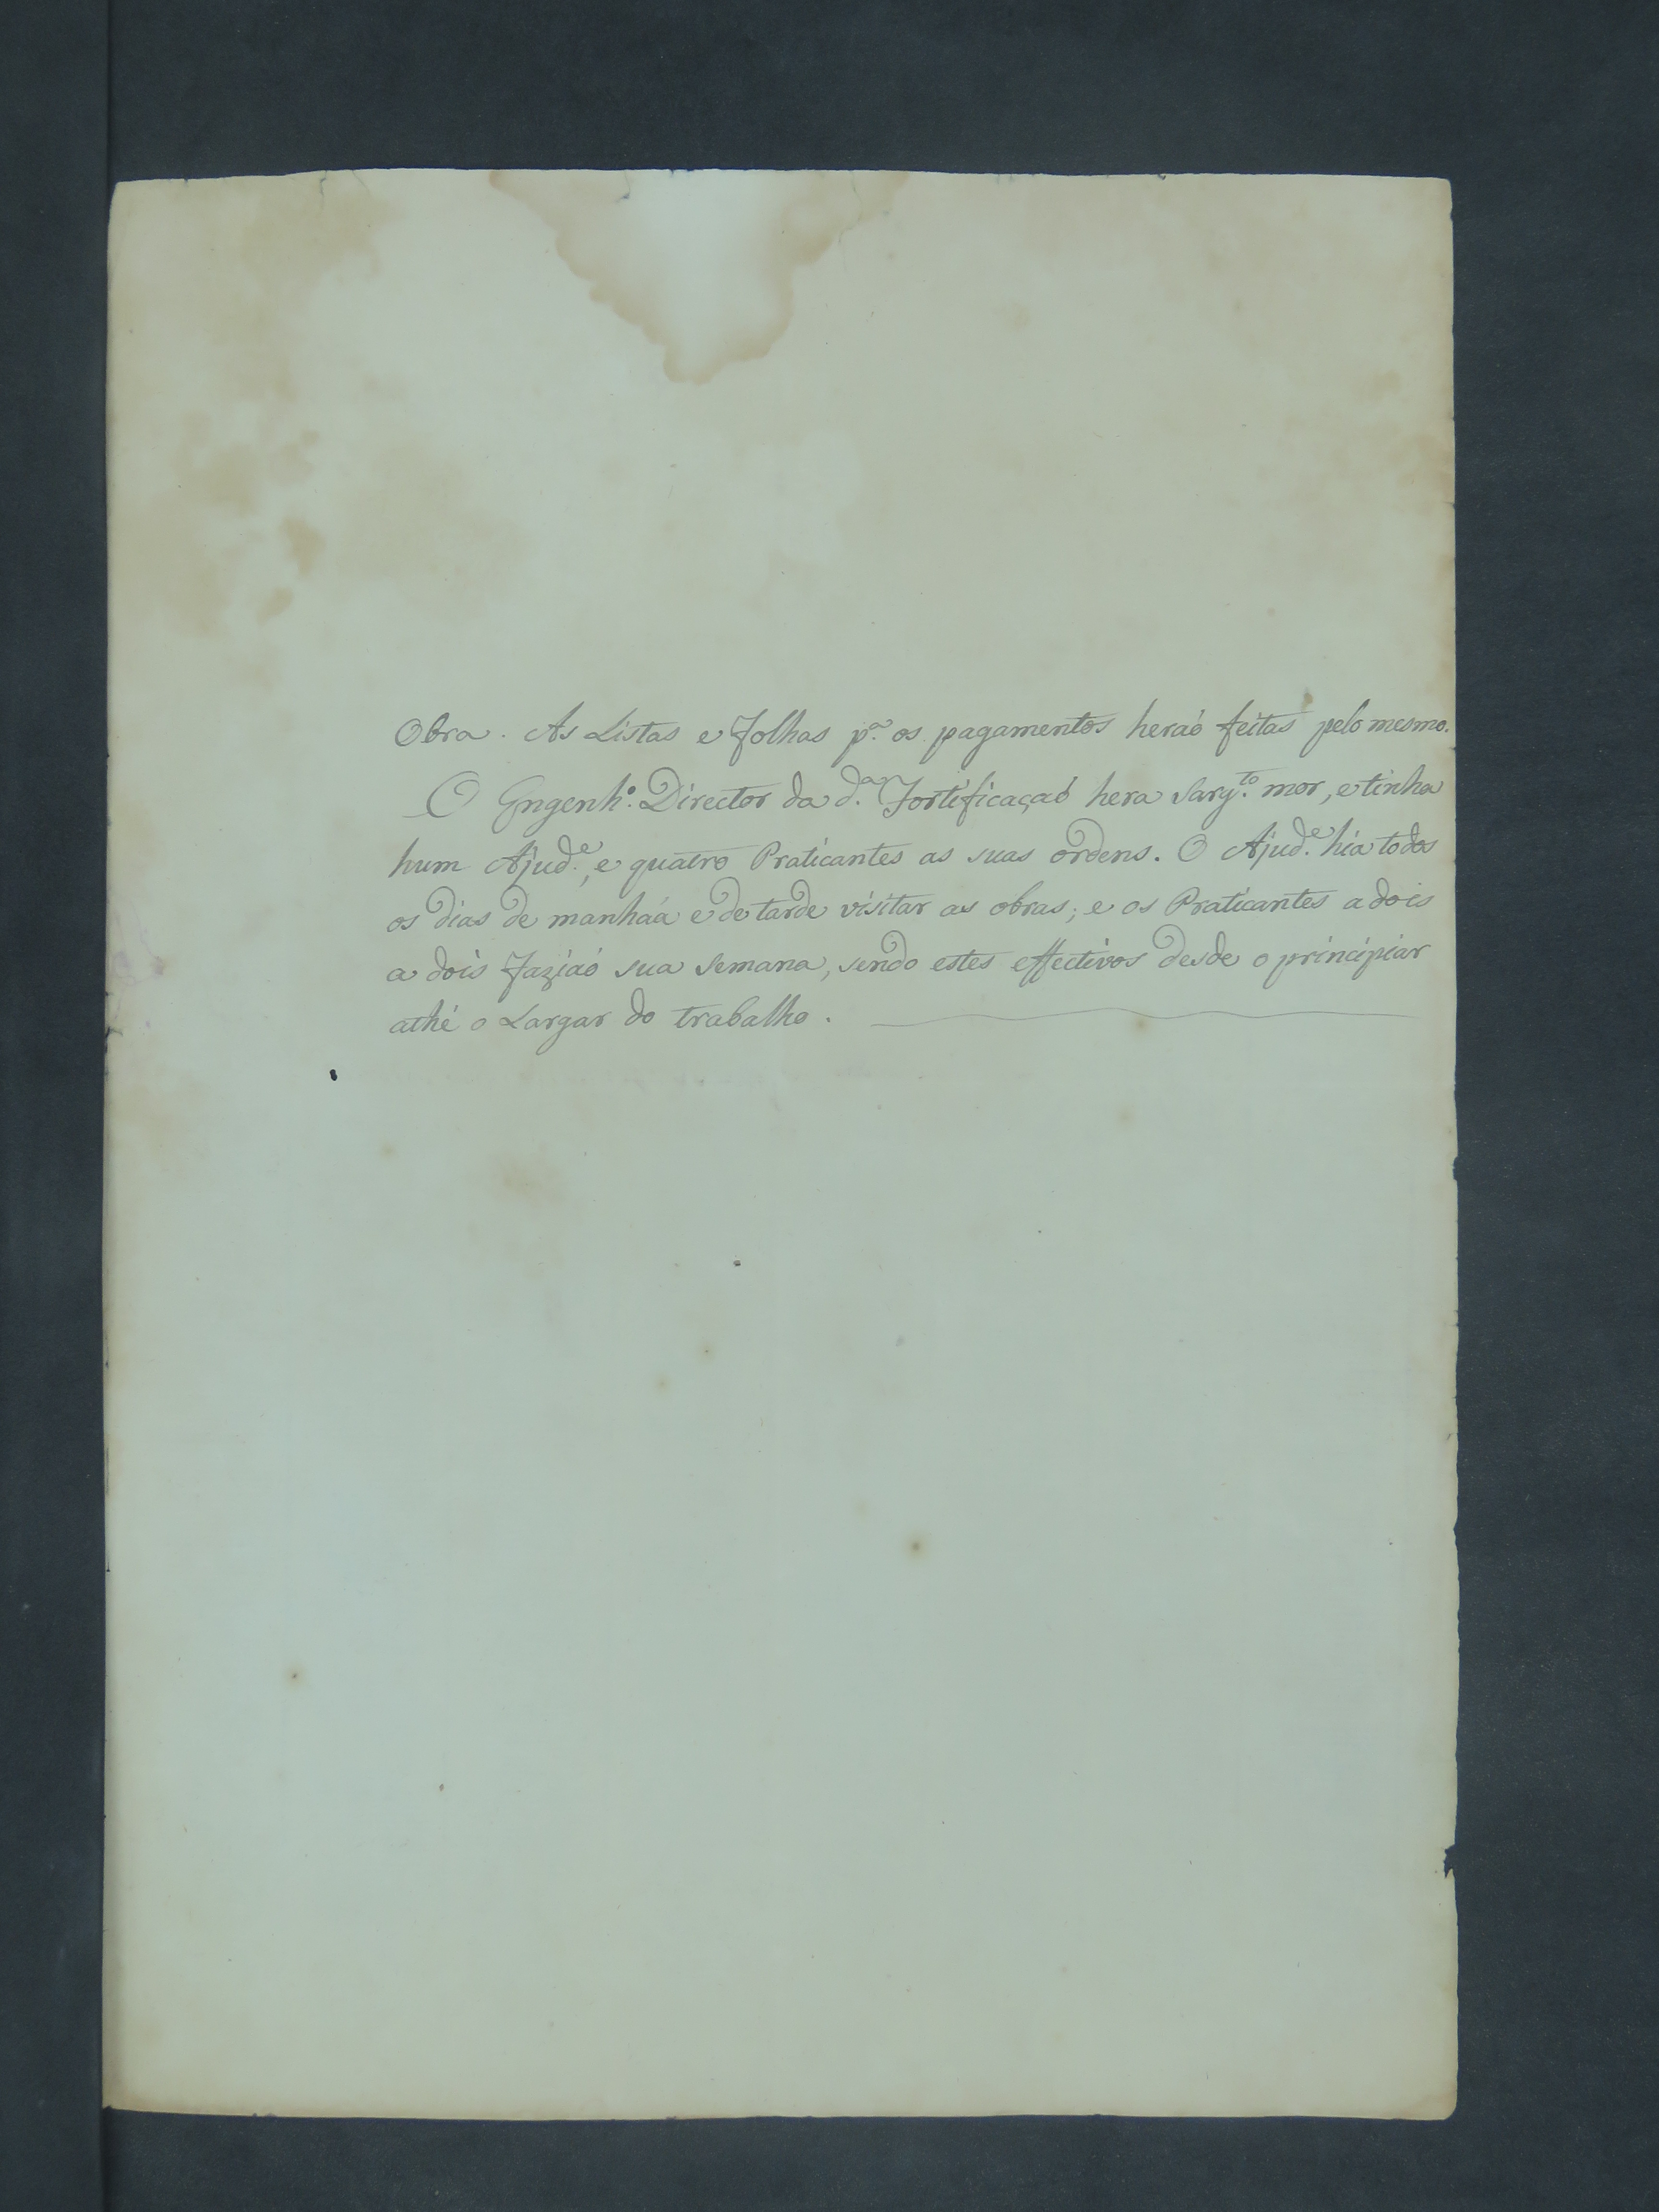 Obra. As Listas e Folhas p.ª os pagamentos heraó feitas pelo mesmo.
O Engenh.º Director da d.ª Fortificaçaó hera Sarg.to mor, e tinha
hum Ajud.e, e quatro Praticantes as suas ordens. O Ajud.e hia todos
os dias de manhaá e de tarde visitar as obras; e os Praticantes a dois
a dois faziaó sua semana, sendo estes effectivos desde o principiar
athé o Largar do trabalho.